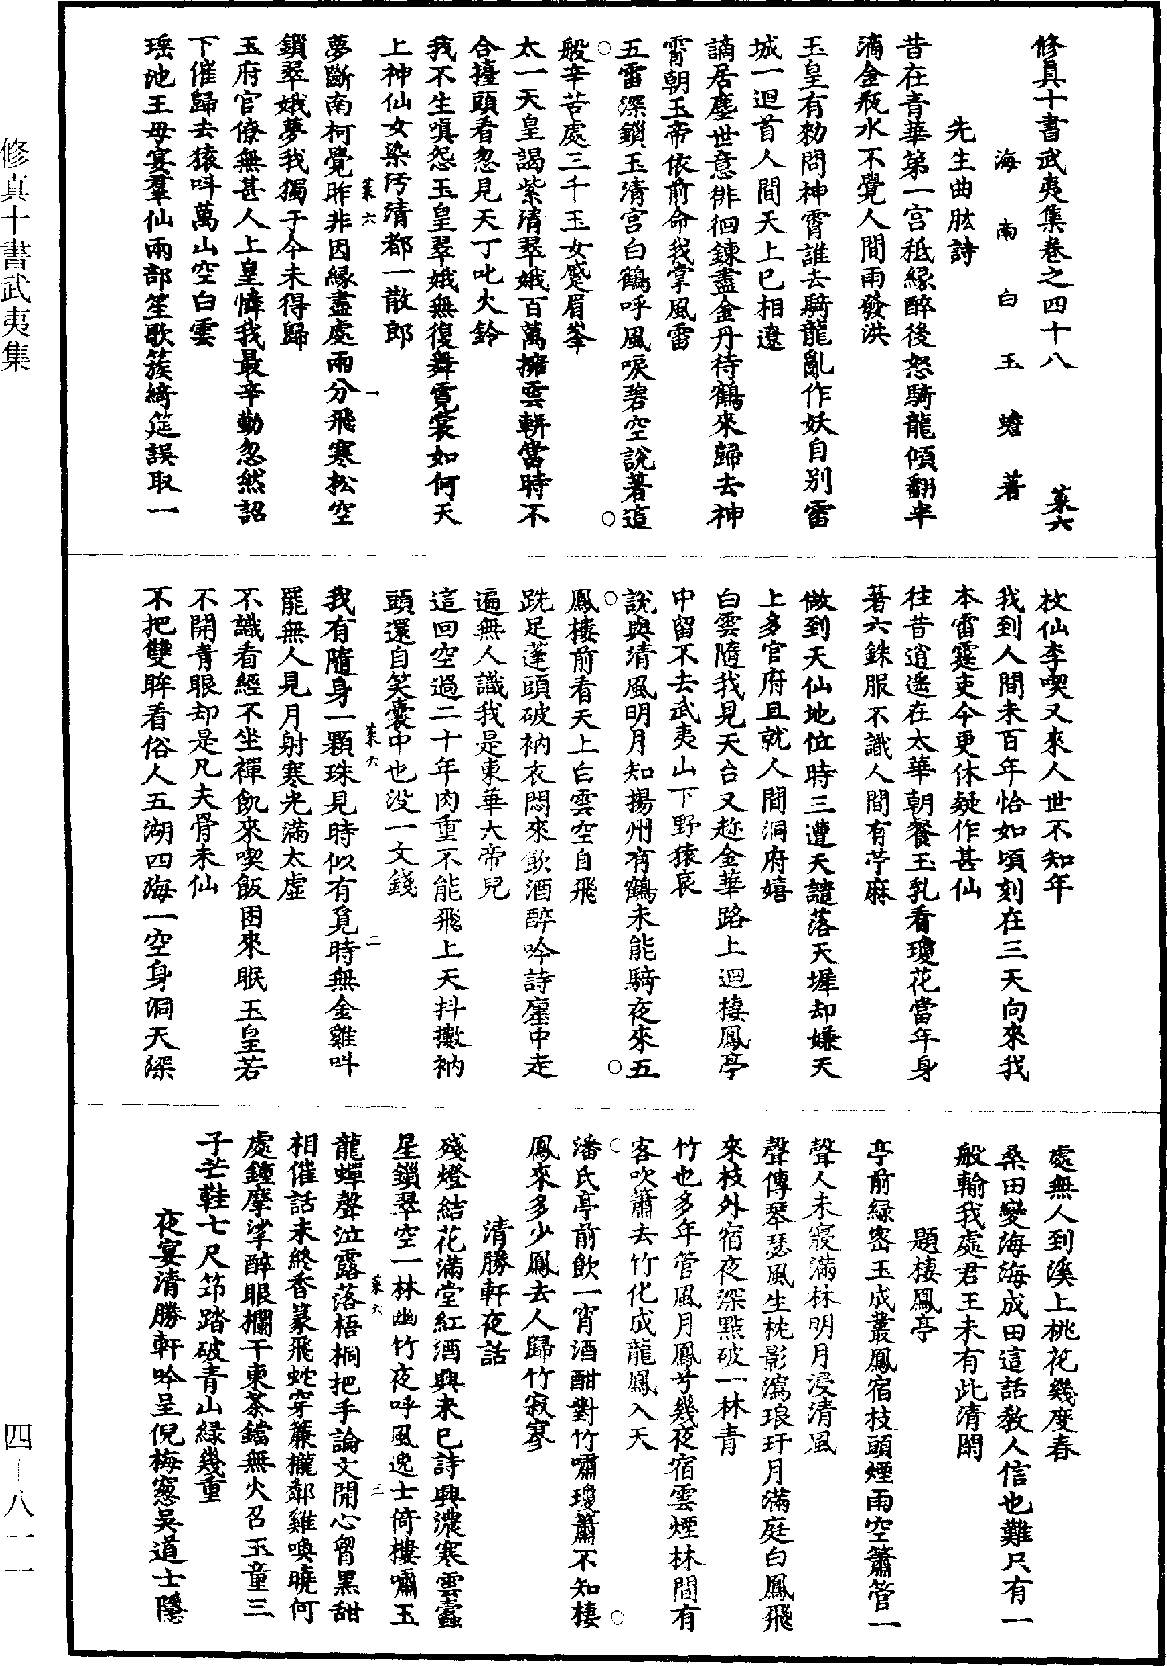 修真十書武夷集卷之四十八 菓六
海南白玉蟾著
先生曲肱詩
昔在青華第一宮秪緣醉後怒騎龍傾翻半
滴金瓶水不覺人間雨發洪
玉皇有勑問神霄誰去騎龍亂作妖自別雷
城一迴首人間天上已相遼
謫居塵世意徘徊鍊盡金丹待鶴來歸去神
霄朝玉帝依前命我掌風雷
五雷深鎖玉清宮白鶴呼風唳碧空說著這
般辛苦處三千玉女蹙眉峯
太一天皇謁紫清翠娥百萬擁雲軿當時不
合擡頭看忽見天丁叱火鈴
我不生嗔怨玉皇翠娥無復舞霓裳如何天
上神仙女染污清都一散郎
菓六 一
夢斷南柯覺昨非因緣盡處兩分飛寒松空
鎖翠娥夢我獨于今未得歸
玉府官僚無甚人上皇憐我最辛勤忽然詔
下催歸去猿叫萬山空白雲
瑤池王母宴羣仙兩部笙歌簇綺筵誤取一
枚仙李喫又來人世不知年
我到人間未百年恰如頃刻在三天向來我
本雷霆吏今更休疑作甚仙
往昔逍遙在太華朝餐玉乳看瓊花當年身
著六銖服不識人間有苧麻
做到天仙地位時三遭天譴落天墀却嫌天
上多官府且就人間洞府嬉
白雲隨我見天台又趂金華路上迴棲鳳亭
中留不去武夷山下野猿哀
說與清風明月知揚州有鶴未能騎夜來五
鳳樓前看天上白雲空自飛
跣足蓬頭破衲衣悶來飲酒醉吟詩廛中走
遍無人識我是東華大帝兒
這回空過二十年肉重不能飛上天抖擻衲
頭還自笑囊中也没一文錢
菓六 二
我有隨身一顆珠見時似有覓時無金雞叫
罷無人見月射寒光滿太虛
不識看經不坐禪飢來喫飯困來眠玉皇若
不開青眼却是凡夫骨未仙
不把雙眸看俗人五湖四海一空身洞天深
處無人到溪上桃花幾度春
桑田變海海成田這話教人信也難只有一
般輸我處君王未有此清閑
題棲鳳亭
亭前綠密玉成叢鳳宿枝頭煙雨空簫管一
聲人未寢滿林明月浸清風
聲傳琴瑟風生枕影瀉琅玕月滿庭白鳳飛
來枝外宿夜深點破一林青
竹也多年管風月鳳兮幾夜宿雲煙林間有
客吹簫去竹化成龍鳳入天
潘氏亭前飲一宵酒酣對竹嘯瓊簫不知棲
鳳來多少鳳去人歸竹寂寥
清勝軒夜話
殘燈結花滿堂紅酒興未已詩興濃寒雲蠹
星鎖翠空一林幽竹夜呼風逸士倚樓嘯玉
菓六 三
龍蟬聲泣露落梧桐把手論文開心胷黑甜
相催話未終香篆飛虵穿簾櫳鄰雞喚曉何
處鍾摩挲醉眼欄干東茶鐺無火召玉童三
子芒鞋七尺筇踏破青山綠幾重
夜宴清勝軒吟呈倪梅窻吳道士隱
修真十書武夷集
四－八一一